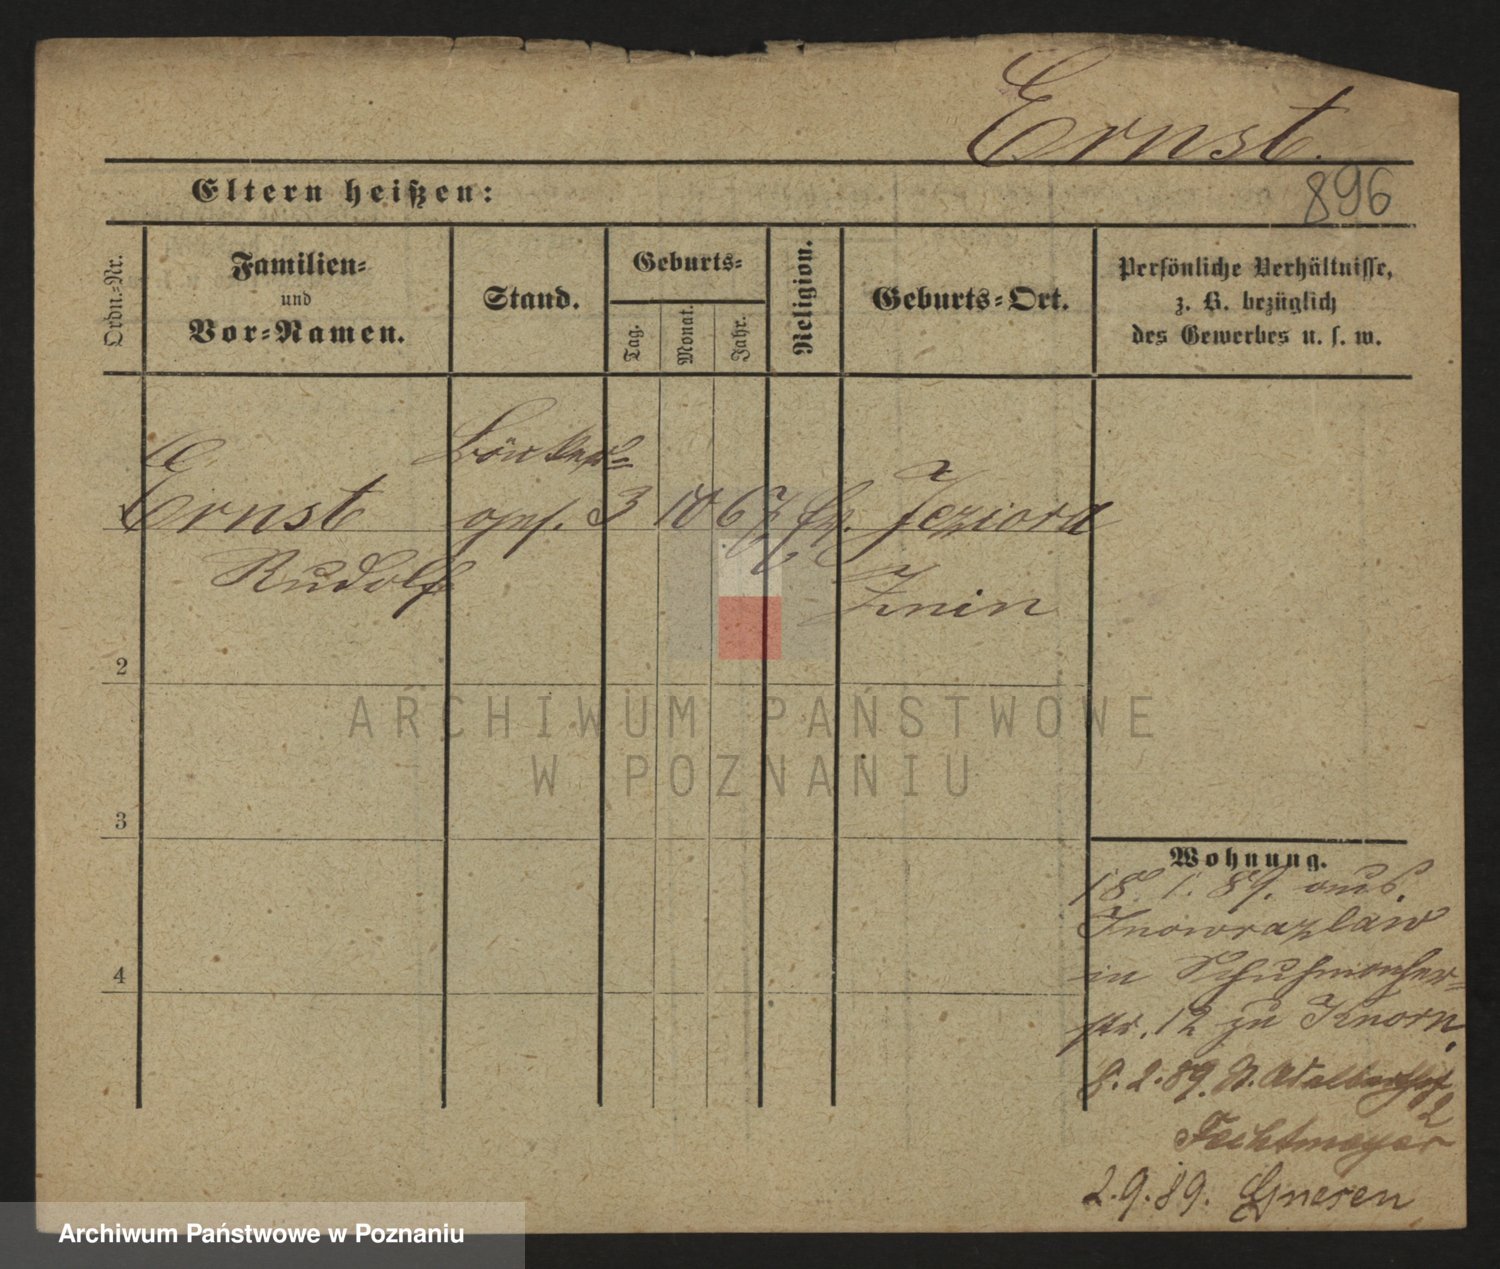 Ernst.
896
Eltern heißen:
Ordn.-Nr.
Familien-
und
Vor-Namen.
Stand.
Geburts-
Tag.
Monat.
Jahr.
Religion.
Geburts-Ort.
Persönliche Verhältnisse,
z. B. bezüglich
des Gewerbes u. s. w.
1
Ernst
Rudolf
ges.
3
10
67
Jeziora
Znin
2
3
4
ARCHIWUM PAŃSTWOWE
W POZNANIU
Wohnung.
18. 1. 89. aus
Inowrazlaw
in Schuhmacher-
str. 12 zu Knorn.
8. 2. 89. St. Adalbertstr
2
Fechtmeyer
2. 9. 89. Gnesen
Archiwum Państwowe w Poznaniu